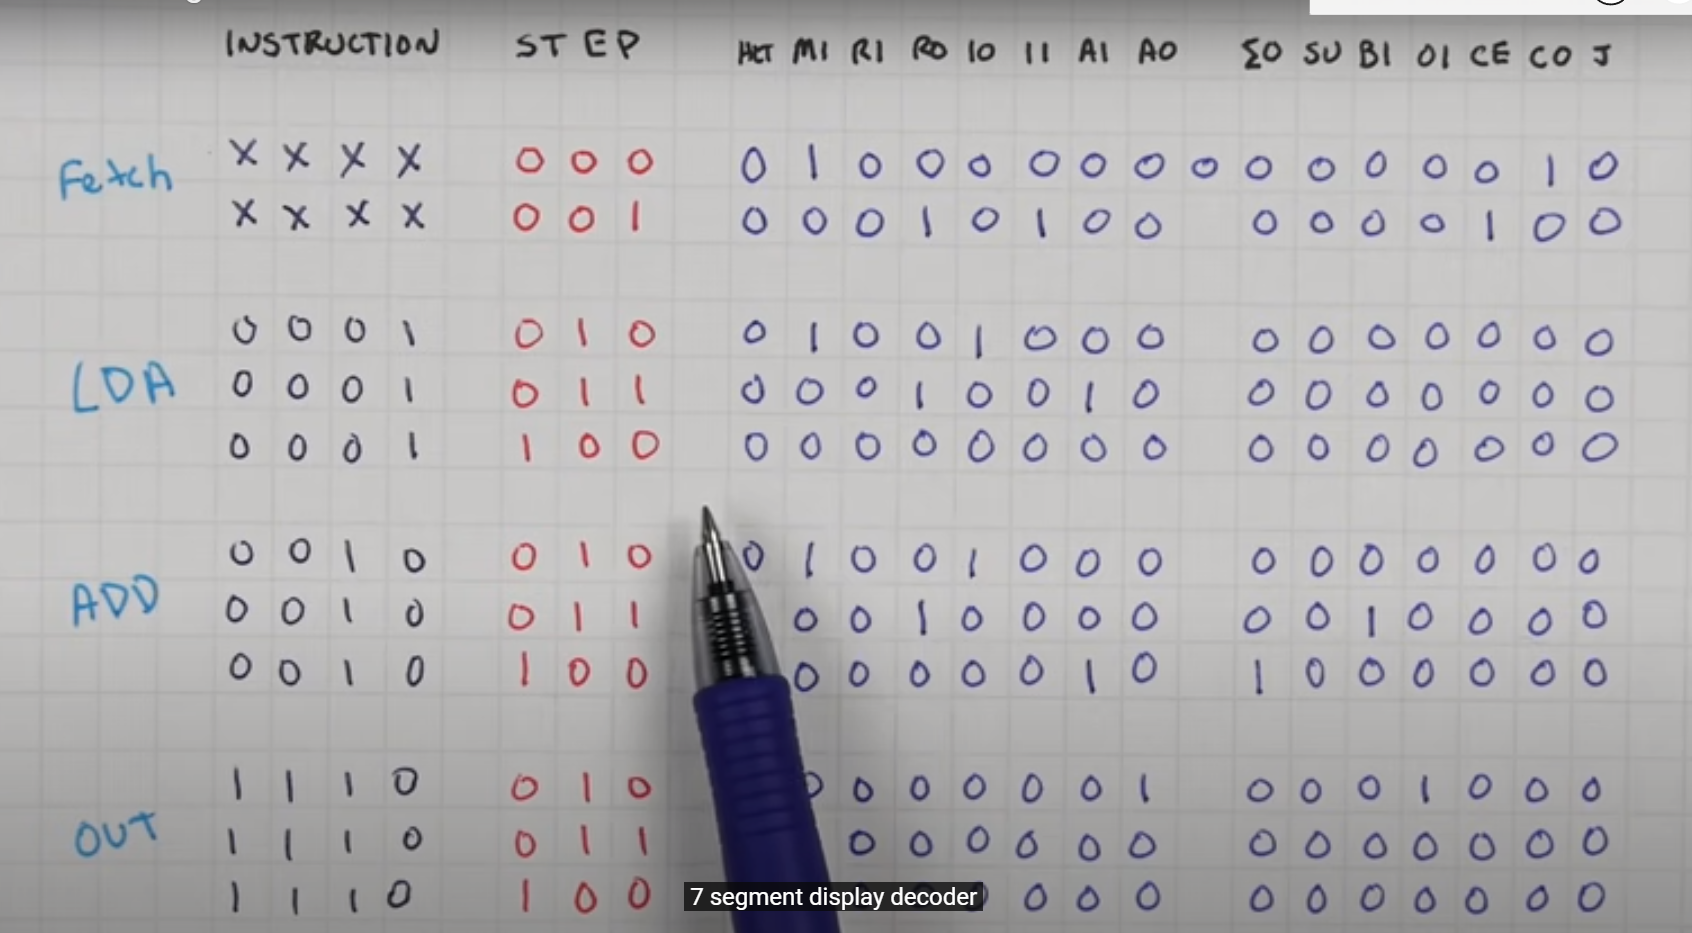 INSTRUCTION STEP HLT MI RI RO IO II AI AO ΣO SU BI OI CE CO J
Fetch X X X X 0 0 0 0 1 0 0 0 0 0 0 0 0 0 0 0 0 1 0
X X X X 0 0 1 0 0 0 1 0 1 0 0 0 0 0 0 1 0 0
LDA
0 0 0 1 0 1 0 0 1 0 0 1 0 0 0 0 0 0 0 0 0 0
0 0 0 1 0 1 1 0 0 0 1 0 0 1 0 0 0 0 0 0 0 0
0 0 0 1 1 0 0 0 0 0 0 0 0 0 0 0 0 0 0 0 0 0
ADD
0 0 1 0 0 1 0 0 1 0 0 1 0 0 0 0 0 0 0 0 0 0
0 0 1 0 0 1 1 0 0 1 0 0 0 0 0 0 1 0 0 0 0
0 0 1 0 1 0 0 0 0 0 0 0 1 0 1 0 0 0 0 0 0
OUT
1 1 1 0 0 1 0 0 0 0 0 0 0 1 0 0 0 1 0 0 0
1 1 1 0 0 1 1 0 0 0 0 0 0 0 0 0 0 0 0 0
1 1 1 0 1 0 0 0 0 0 0 0 0 0 0 0 0 0
7 segment display decoder